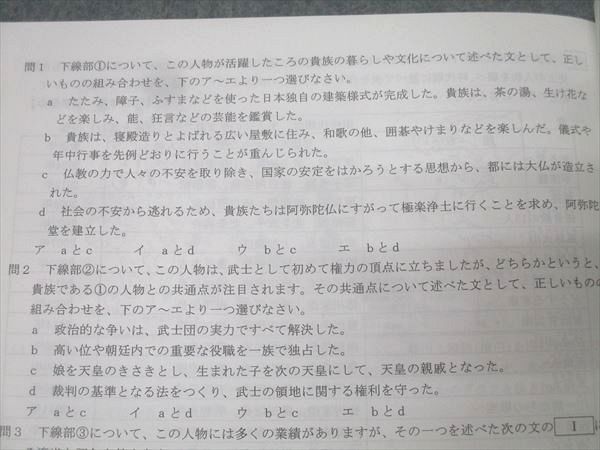 問1 下線部①について、この人物が活躍したころの貴族の暮らしや文化について述べた文として、正し
いものの組み合わせを、下のア～エより一つ選びなさい。
a たたみ、障子、ふすまなどを使った日本独自の建築様式が完成した。貴族は、茶の湯、生け花な
どを楽しみ、能、狂言などの芸能を鑑賞した。
b 貴族は、寝殿造りとよばれる広い屋敷に住み、和歌の他、囲碁やけまりなどを楽しんだ。儀式や
年中行事を先例どおりに行うことが重んじられた。
c 仏教の力で人々の不安を取り除き、国家の安定をはかろうとする思想から、都には大仏が造立さ
れた。
d 社会の不安から逃れるため、貴族たちは阿弥陀仏にすがって極楽浄土に行くことを求め、阿弥陀
堂を建立した。
ア aとc イ aとd ウ bとc エ bとd
問2 下線部②について、この人物は、武士として初めて権力の頂点に立ちましたが、どちらかというと、
貴族である①の人物との共通点が注目されます。その共通点について述べた文として、正しいものの
組み合わせを、下のア～エより一つ選びなさい。
a 政治的な争いは、武士団の実力ですべて解決した。
b 高い位や朝廷内での重要な役職を一族で独占した。
c 娘を天皇のきさきとし、生まれた子を次の天皇にして、天皇の親戚となった。
d 裁判の基準となる法をつくり、武士の領地に関する権利を守った。
ア aとc イ aとd ウ bとc エ bとd
問3 下線部③について、この人物には多くの業績がありますが、その一つを述べた次の文の I に